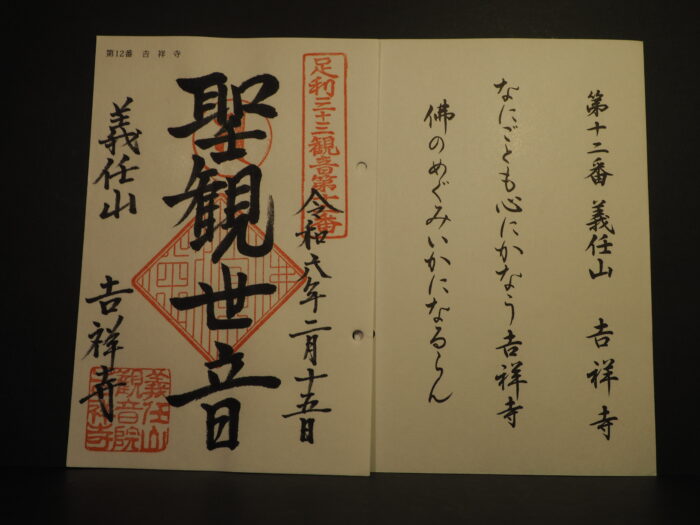 第十二番 義任山 吉祥寺
なにごとも心にかなう吉祥寺
佛のめぐみいかになるらん
第12番 吉祥寺
足利三十三観音第十二番
令和六年二月十五日
聖観世音
義任山 吉祥寺
義任山
観音院
吉祥寺